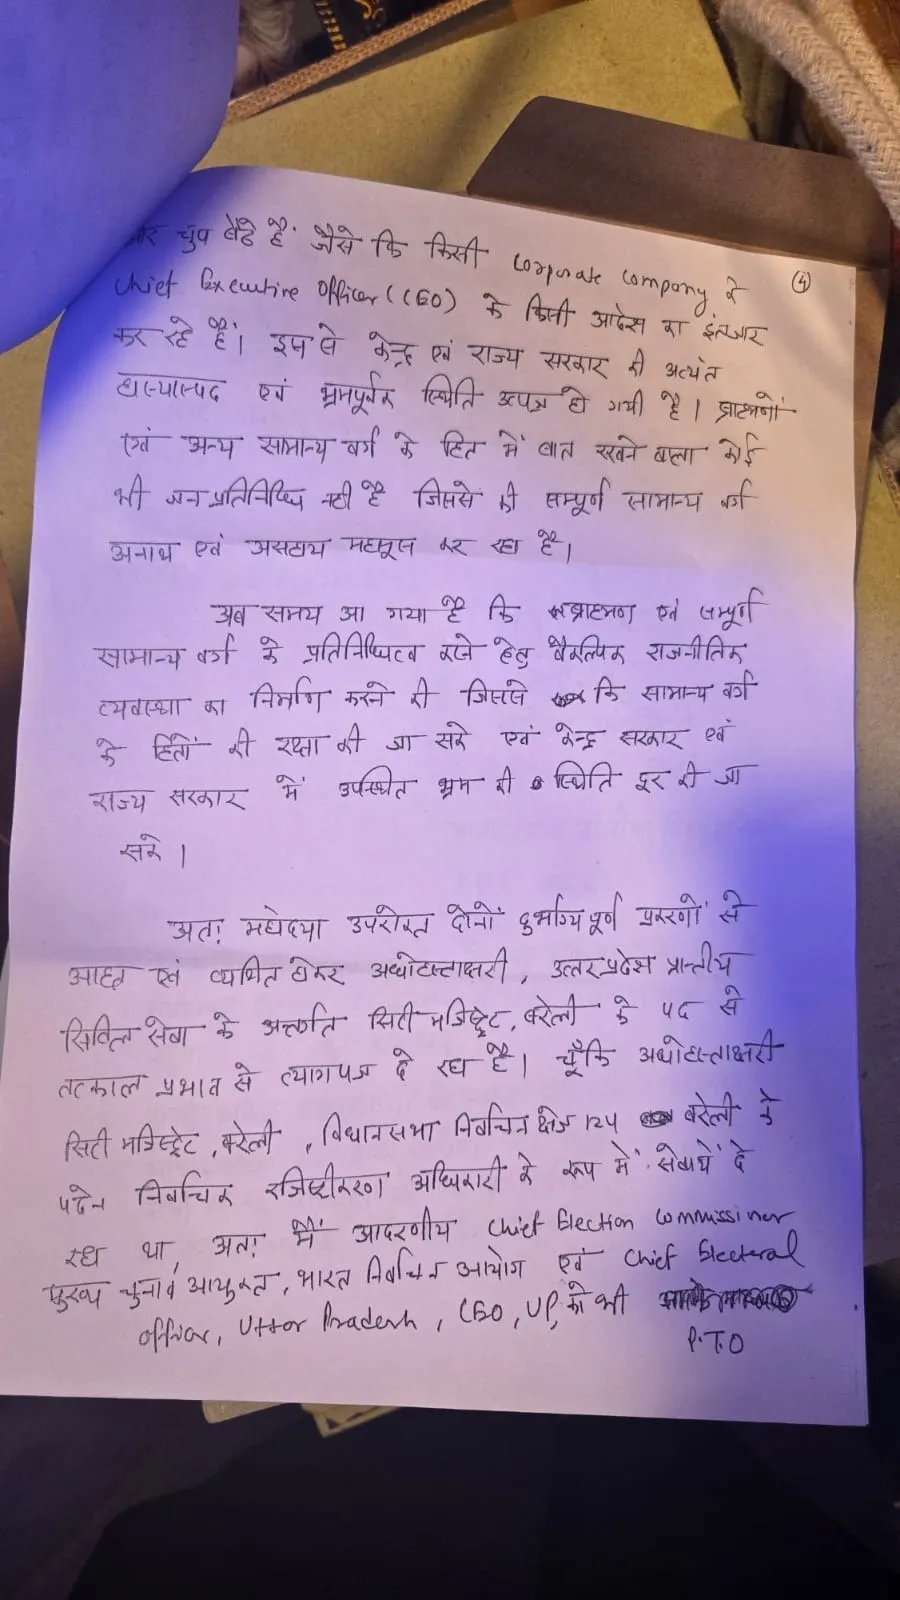 ④
और चुप बैठे हैं जैसे कि किसी Corporate Company के
Chief Executive Officer (CEO) के किसी आदेश का इंतजार
कर रहे हैं। इससे केन्द्र एवं राज्य सरकार की अत्यंत
हास्यास्पद एवं भ्रमपूर्वक स्थिति उत्पन्न हो गयी है। ब्राह्मणों
एवं अन्य सामान्य वर्ग के हित में बात रखने वाला कोई
भी जनप्रतिनिधि नहीं है जिससे की सम्पूर्ण सामान्य वर्ग
अनाथ एवं असहाय महसूस कर रहा है।
अब समय आ गया है कि ब्राह्मण एवं सम्पूर्ण
सामान्य वर्ग के प्रतिनिधित्व करने हेतु वैकल्पिक राजनीतिक
व्यवस्था का निर्माण करने की जिससे कि सामान्य वर्ग
के हितों की रक्षा की जा सके एवं केन्द्र सरकार एवं
राज्य सरकार में उपस्थित भ्रम की स्थिति दूर की जा
सके।
अतः महोदया उपरोक्त दोनों दुर्भाग्यपूर्ण प्रकरणों से
आहत एवं व्यथित होकर अधोहस्ताक्षरी, उत्तर प्रदेश प्रान्तीय
सिविल सेवा के अन्तर्गत सिटी मजिस्ट्रेट, बरेली के पद से
तत्काल प्रभाव से त्यागपत्र दे रहा है। चूँकि अधोहस्ताक्षरी
सिटी मजिस्ट्रेट, बरेली, विधानसभा निर्वाचन क्षेत्र 124 बरेली के
पदेन निर्वाचक रजिस्ट्रीकरण अधिकारी के रूप में सेवायें दे
रहा था, अतः मैं आदरणीय Chief Election Commissiner
मुख्य चुनाव आयुक्त, भारत निर्वाचन आयोग एवं Chief Electoral
Officer, Uttar Pradesh, CEO, UP, को भी
P.T.O